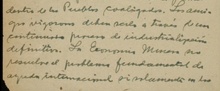 dentia de los Pueblos coaligados. Sin amis-
que vigorosa deben serlo a través de un
continuoso proceso de industrialización
definitivo. La Economía Menor no
resuelve el problema fundamental de
ayuda internacional si solamente en los